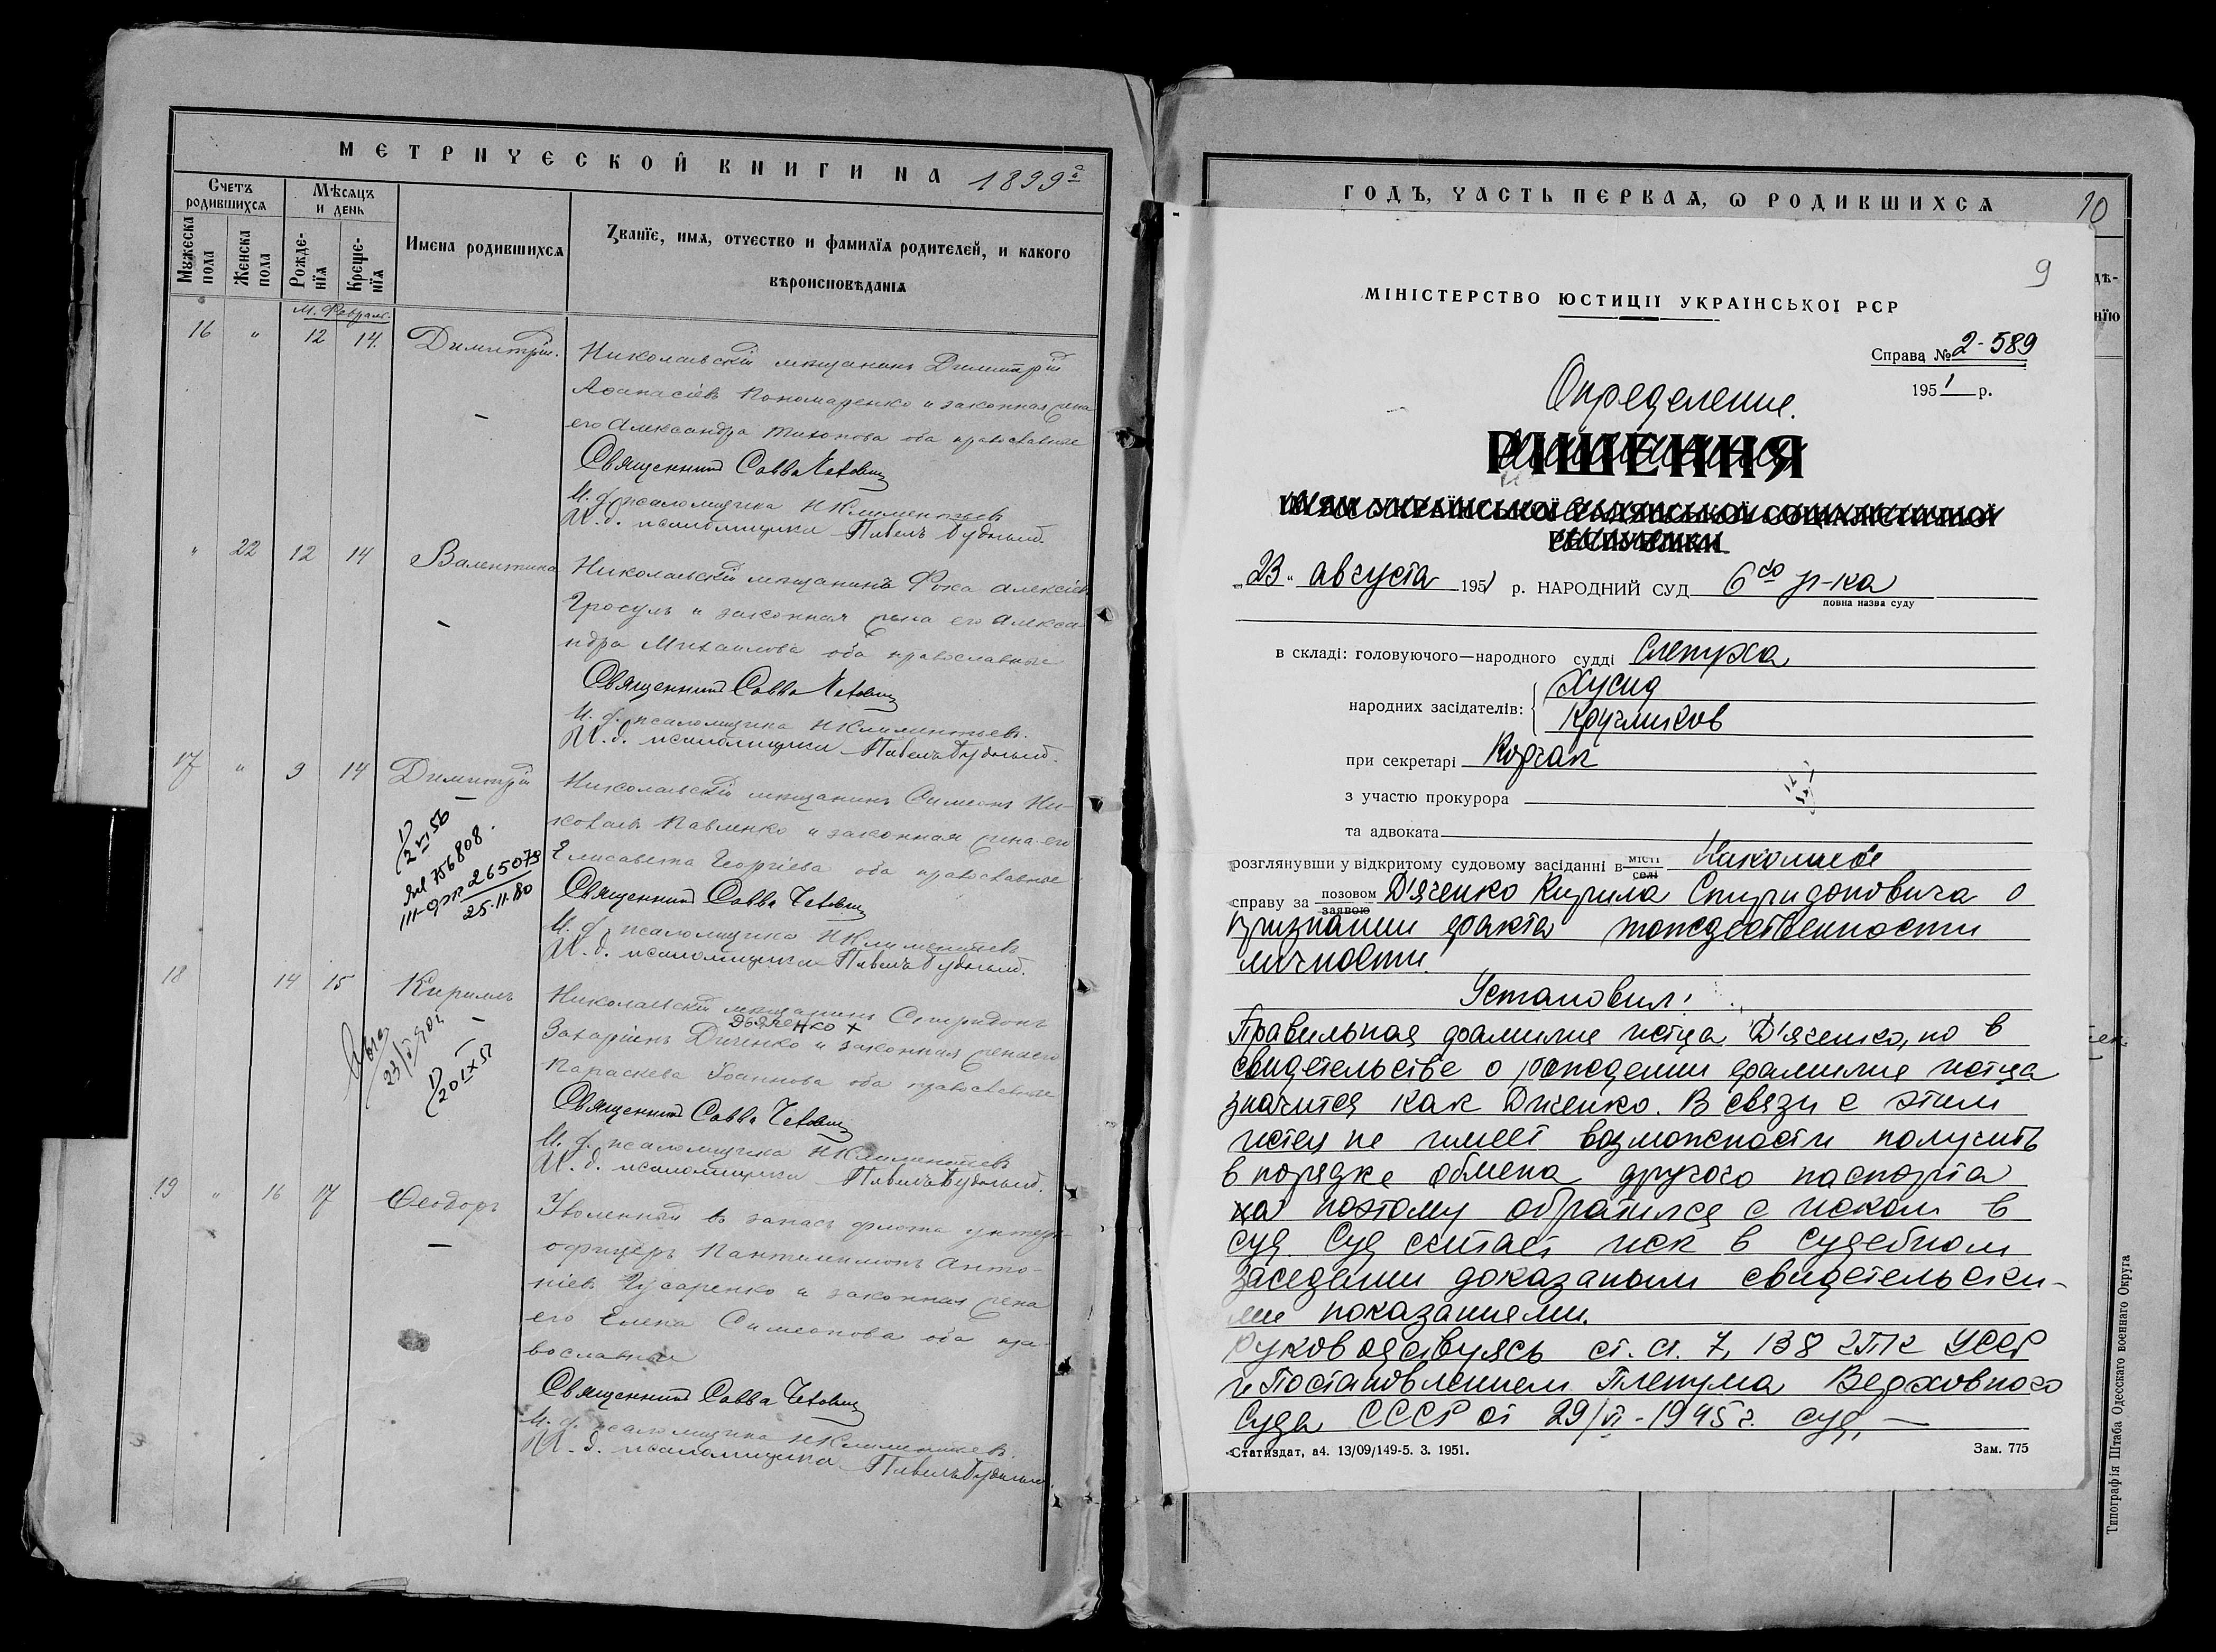 МЕТРИЧЕСКОЙ КНИГИ НА 1899 а
Счетъ родившихся
Мѣсяцъ и день
Мужеска пола
Женска пола
Рожденїя
Крещенїя
Имена родившихся
Званїе, имя, отчество и фамилїя родителей, и какого
вѣроисповѣданїя
М. Февраль.
16 " 12 14. Димитрій. Николаевскій мѣщанинъ Димитрій
Аѳанасіевъ Пономаренко и законная жена
его Александра Тихонова оба православные
Священникъ Савва
И. д. псаломщика Н Климентьевъ
И. д. псаломщика Павелъ
" 22 12 14 Валентина Николаевскій мѣщанинъ Фока Алексіевъ
Гросулъ и законная жена его Алекса-
ндра Михаилова оба православные
Священникъ Савва
И. д. псаломщика Н Климентьевъ.
И. д. псаломщика Павелъ
17 " 9 14 Димитрій Николаевскій мѣщанинъ Симеонъ Ни-
Павленко и законная жена его
Елисавета Георгіева оба православные
Священникъ Савва
И. д. псаломщика Н Климентьевъ
И. д. псаломщика Павелъ
2 VI 56
756808.
265073
25.11.80
18 14 15 Кириллъ Николаевскій мѣщанинъ Спиридонъ
Дьяченко х
Захаріинъ Диченко и законная жена его
Параскева Іоаннова оба православные
Священникъ Савва
И. д. псаломщика Н Климентьевъ
И. д. псаломщика Павелъ
20 IX 51
19 " 16 17 Ѳеодоръ Уволенный въ запасъ флота унтеръ-
офицеръ Пантелимонъ Анто-
ніевъ Гусаренко и законная жена
его Елена Симеонова оба пра-
вославные
Священникъ Савва
И. д. псаломщика Н Климентьевъ.
И. д. псаломщика Павелъ
ГОДЪ, ЧАСТЬ ПЕРВАЯ, Ѡ РОДИВШИХСЯ
10
9
МІНІСТЕРСТВО ЮСТИЦІЇ УКРАЇНСЬКОЇ РСР
Справа № 2-589
1951 р.
Определение.
РІШЕННЯ
ІМ'ЯМ УКРАЇНСЬКОЇ РАДЯНСЬКОЇ СОЦІАЛІСТИЧНОЇ
РЕСПУБЛІКИ
„23" августа 1951 р. НАРОДНИЙ СУД 6го р-ка
повна назва суду
в складі: головуючого—народного судді Слепуха
народних засідателів: Хусид
Кругликов
при секретарі Корчак
з участю прокурора
та адвоката
розглянувши у відкритому судовому засіданні в місті селі Николаеве
справу за позовом заявою Д'яченко Кирила Спиридоновича о
признании факта тождественности
личности.
Установил:
Правильная фамилие истца Д'яченко, но в
свидетельстве о рождении фамилие истца
значится как Диченко. В связи с этим
истец не имеет возможности получить
в порядке обмена другого паспорта
поэтому обратился с иском в
суд. Суд считает иск в судебном
заседании доказаным свидетельски-
ми показаниями.
Руководствуясь ст. ст. 7, 138 ГПК УССР
и Постановлением Пленума Верховного
Суда СССР от 29/VI-1945 г. суд, —
Статиздат, а4. 13/09/149-5. 3. 1951.
Зам. 775
Типографія Штаба Одесскаго военнаго Округа